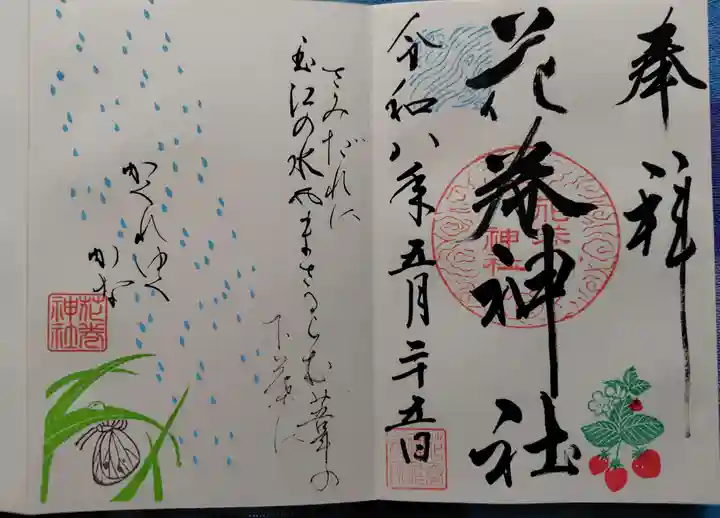 奉拝
花巻神社
花巻
神社
令和八年五月二十五日
さみだれに
玉江の水やまさるらむ葦の
下葉
かくれゆく
かな
花巻
神社